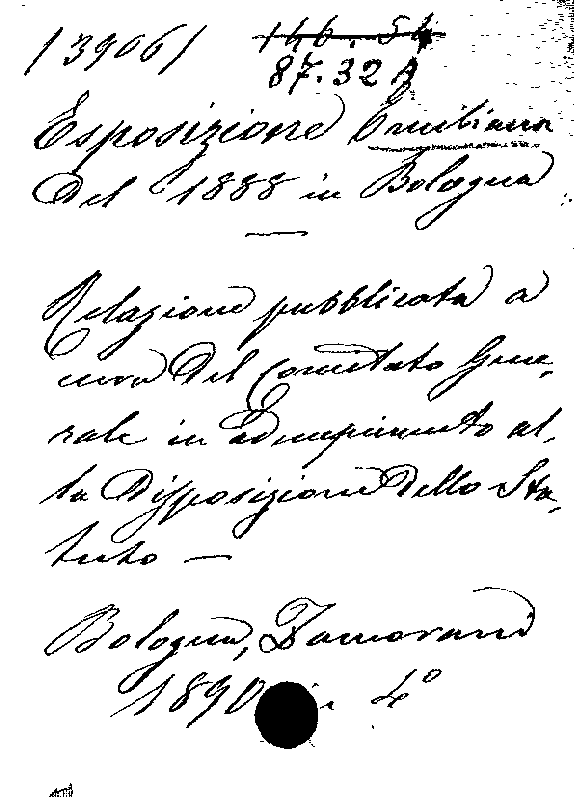 139061 146. 54
87.32 A
Esposizione Emiliana
del 1888 in Bologna
Relazione pubblicata a
cura del Comitato Gene-
rale in adempimento al-
la Disposizione dello Sta-
tuto —
Bologna, Zamorani
1890 in 4°